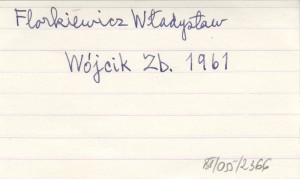 Florkiewicz Władysław
Wójcik Zb. 1961
/OD/2366